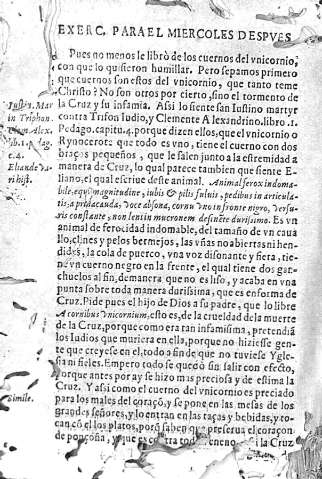 EXERC. PARA EL MIERCOLES DESPVES
Pues no menos le librò de los cuernos del vnicornio,
con que lo quisieron humillar. Pero sepamos primero
que cuernos son estos del vnicornio, que tanto teme
Christo? No son otros por cierto, sino el tormento de
la Cruz y su infamia. Assi lo siente san Iustino martyr
contra Trifon Iudio, y Clemente Alexandrino. libro .1.
Pedago. capitu. 4. porque dizen ellos, que el vnicornio o
Rynocerote que todo es vno, tiene el cuerno con dos
braços pequeños, que le salen junto a la estremidad a
manera de Cruz, lo qual parece tambien que siente E-
liano, el qual escriue desse animal. Animal ferox indoma-
bile, equi magnitudine, iubis & pilis fuluis, pedibus in articula-
tis, aprina cauda, voce absona, cornu vno in fronte nigro, versu-
ris constante, non leni in mucronem desinẽte durissimo. Es vn
animal de ferocidad indomable, del tamaño de vn caua
llo, clines y pelos bermejos, las vñas no abiertas ni hen-
didas, la cola de puerco, vna voz disonante y fiera, tie-
ne vn cuerno negro en la frente, el qual tiene dos gar-
chuelos al fin, de manera que no es liso, y acaba en vna
punta sobre toda manera durissima, que es en forma de
Cruz. Pide pues el hijo de Dios a su padre, que lo libre
A cornibus vnicornium, esto es, de la crueldad de la muerte
de la Cruz, porque como era tan infamissima, pretendiã
los Iudios que muriera en ella, porque no hiziesse gen-
te que creyesse en el, todo a fin de que no tuviesse Ygle-
sia ni fieles. Empero todo se quedò sin salir con efecto,
porque antes por ay se hizo mas preciosa y de estima la
Cruz. Y assi como el cuerno del vnicornio es preciado
para los males del coraçõ, y se pone en las mesas de los
grandes señores, y lo entran en las taças y bebidas, y to-
can cõ el los platos, porq̃ saben que preserua el coraçon
de ponçoña, y que es contra todo veneno la Cruz
Iustin. Mar
in Triphon.
Clem. Alex.
lib. 1. pedag.
c. 4.
Eliande va-
ri hist.
Simile.